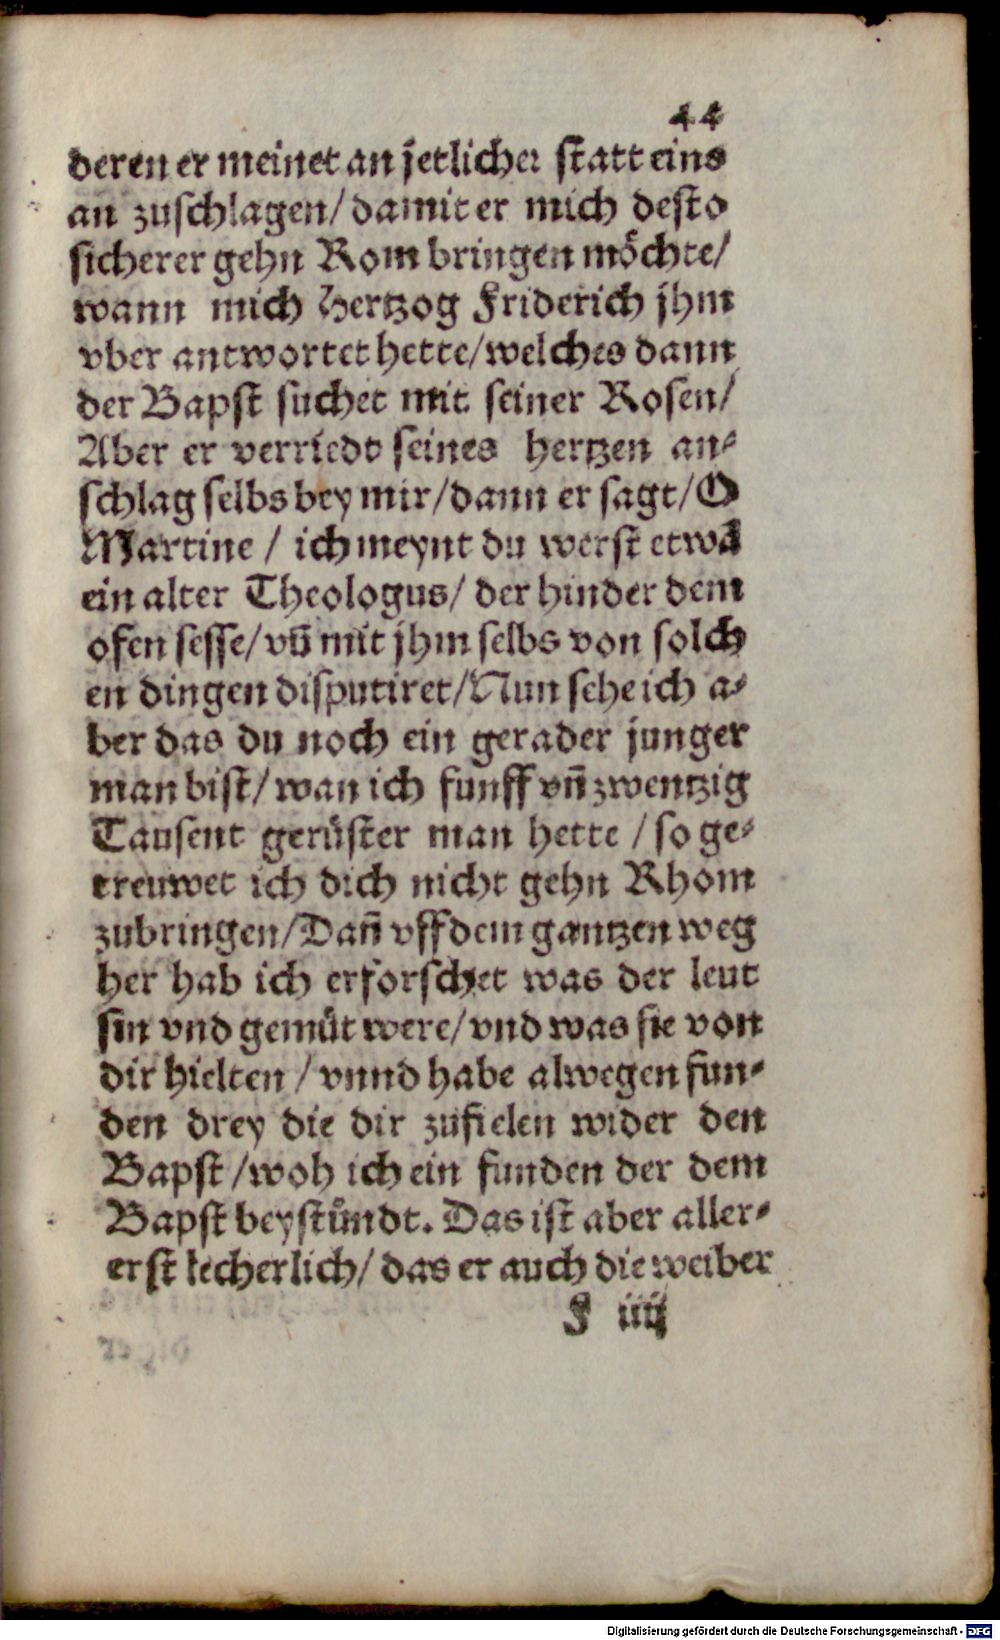 44
deren er meinet an jetlicher statt eins
an zuschlagen/ damit er mich desto
sicherer gehn Rom bringen möchte/
wann mich Hertzog Friderich jhm
vber antwortet hette/welches dann
der Bapst suchet mit seiner Rosen/
Aber er verriedt seines hertzen an⸗
schlag selbs bey mir/dann er sagt/O
Martine / ich meynt du werst etwā
ein alter Theologus/ der hinder dem
ofen sesse/vn̄ mit jhm selbs von solch
en dingen disputiret/Nun sehe ich a⸗
ber das du noch ein gerader junger
man bist/ wan ich funff vn̄ zwentzig
Tausent gerüster man hette / so ge⸗
treuwet ich dich nicht gehn Rhom
zubringen/Dan̄ vff dem gantzen weg
her hab ich erforschet was der leut
sin vnd gemüt were/vnd was sie von
dir hielten / vnnd habe alwegen fun⸗
den drey die dir zufielen wider den
Bapst /woh ich ein funden der dem
Bapst beystůndt. Das ist aber aller⸗
erst lecherlich/ das er auch die weiber
F iiij
Digitalisierung gefördert durch die Deutsche Forschungsgemeinschaft - DFG